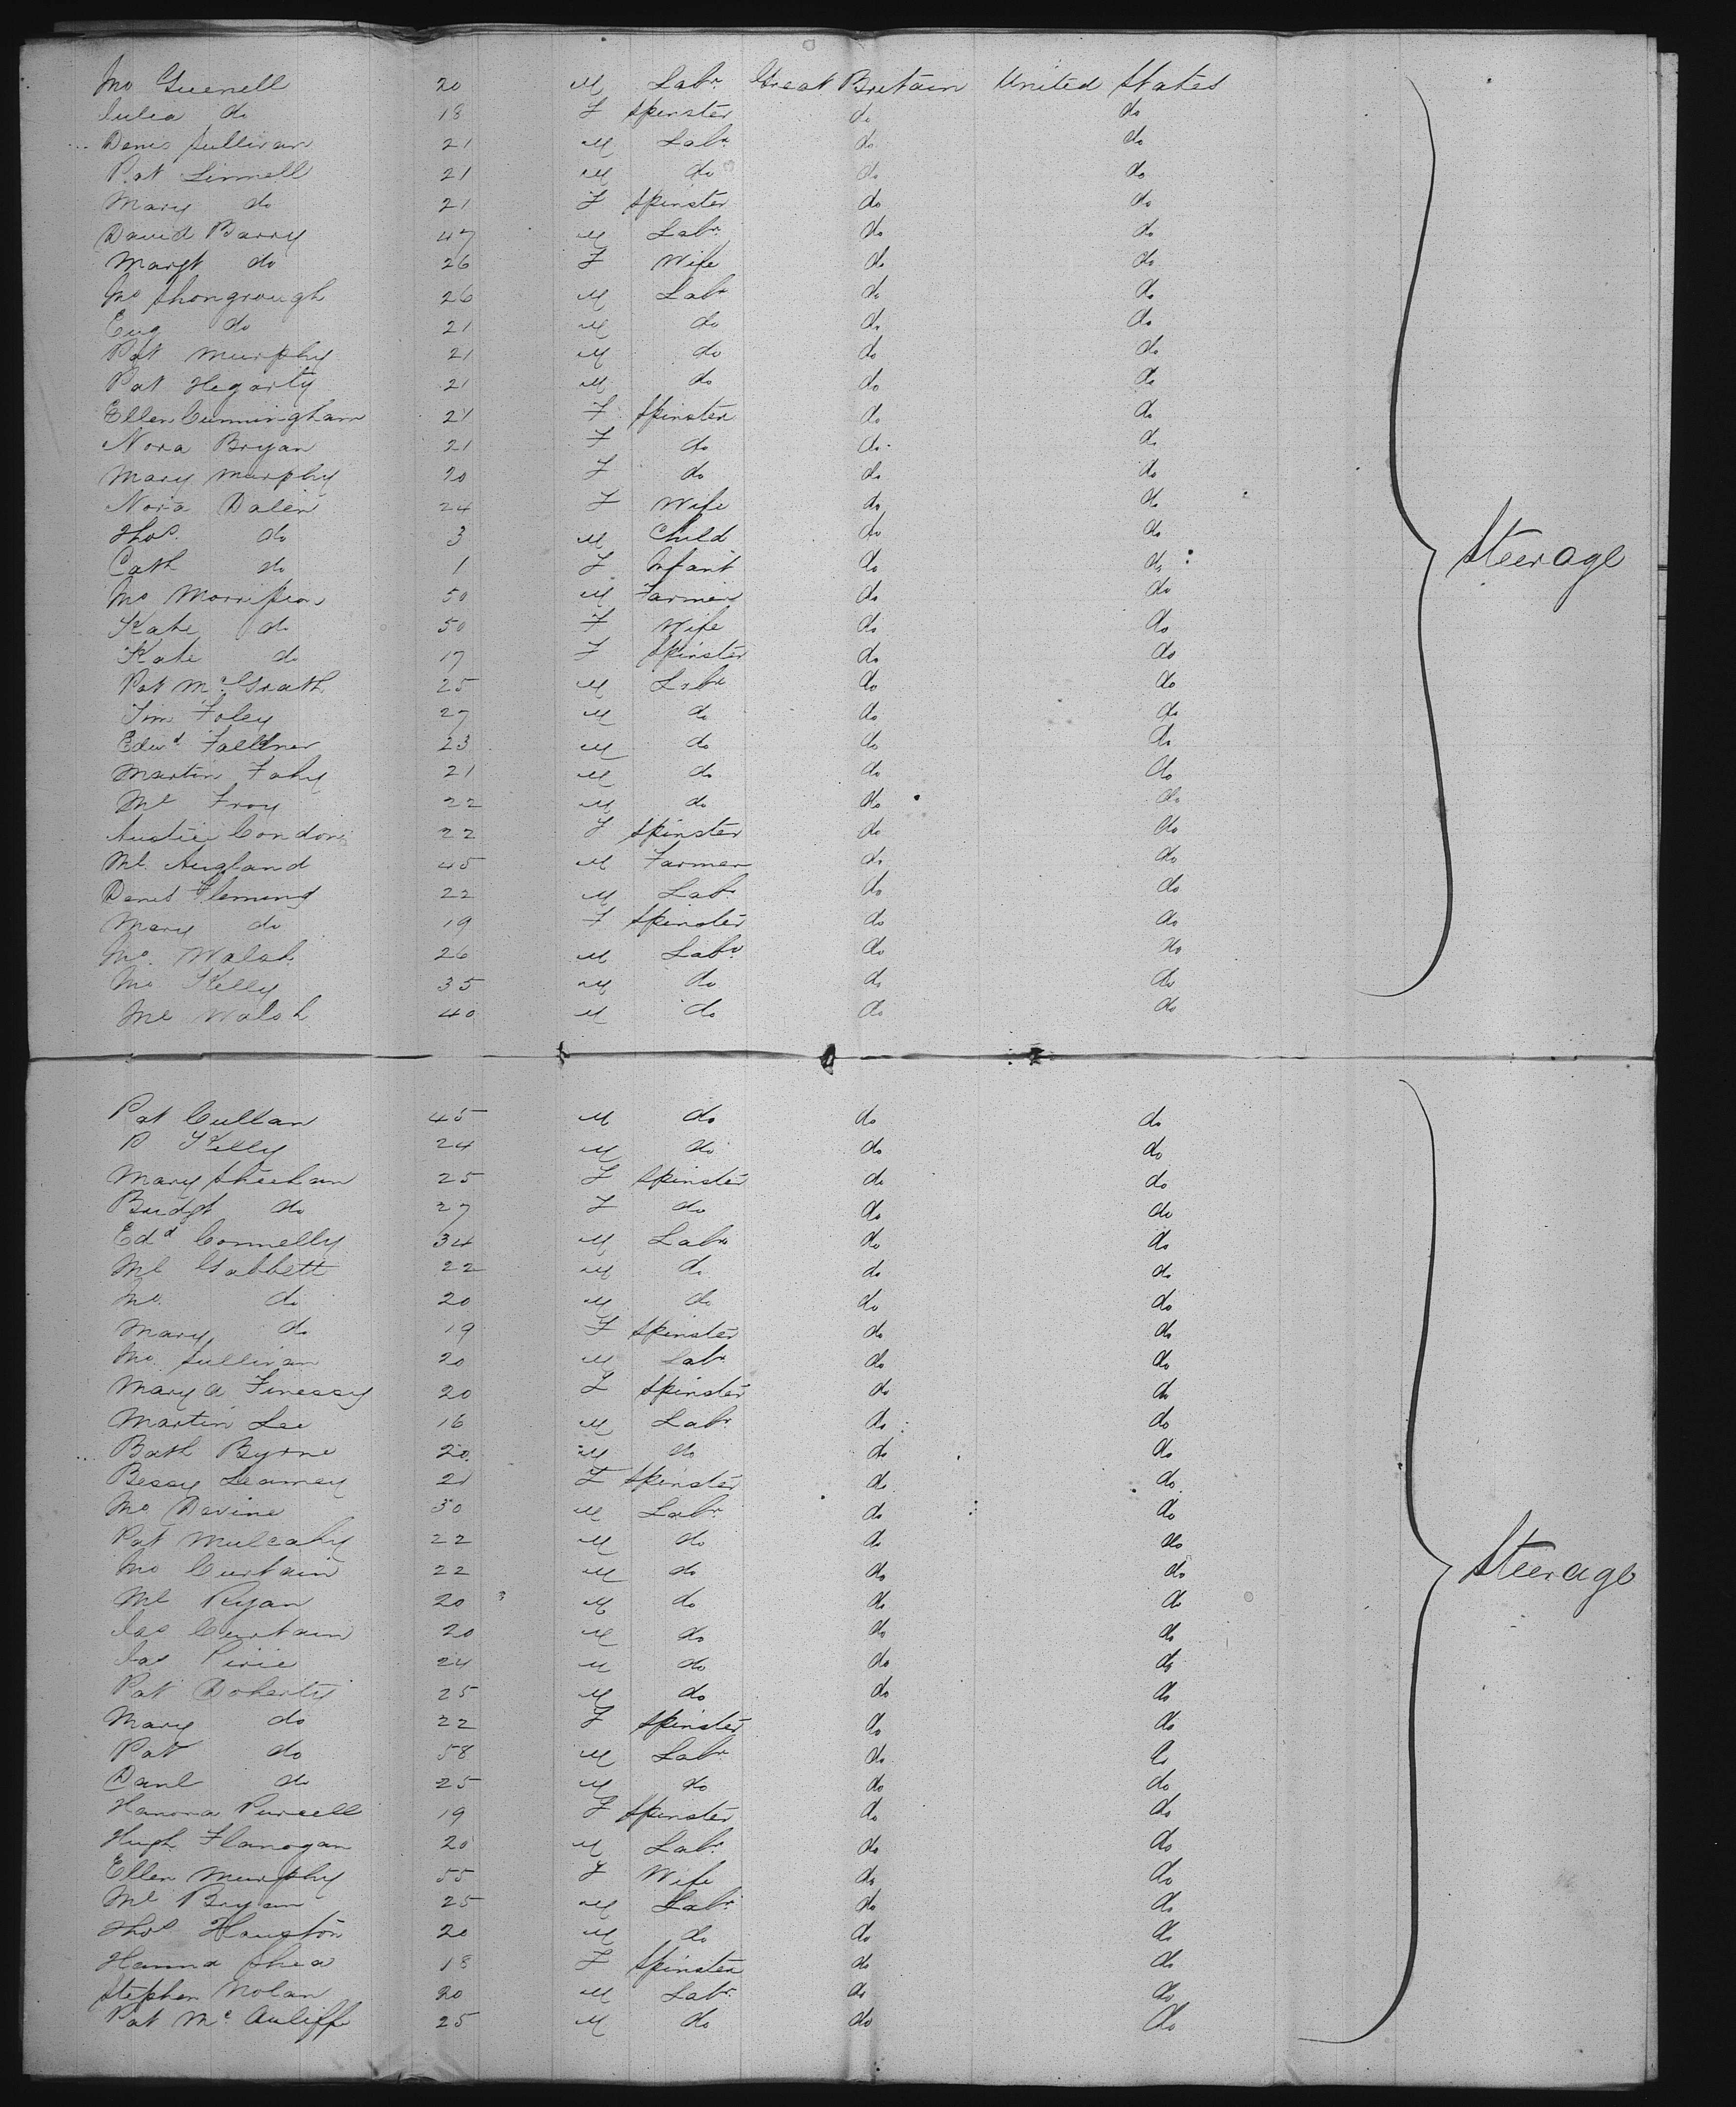 Jno Guenell 20 M Labr Great Britain United States
Julia do 18 F Spinster do do
Denis Sullivan 21 M Labr do do
Pat Linnell 21 M do do do
Mary do 21 F Spinster do do
David Barry 47 M Labr do do
Margt do 26 F Wife do do
Jno Shongrough 26 M Labr do do
Eug do 21 M do do do
Pat Murphy 21 M do do do
Pat Hegarty 21 M do do do
Ellen Cunningham 21 F Spinster do do
Nora Bryan 21 F do do do
Mary Murphy 20 F do do do
Nora Dalen 24 F Wife do do
Thos. do 3 M Child do do
Cath do 1 F Infant do do
Jno Morrission 50 M Farmer do do
Kate do 50 F Wife do do
Steerage
Kate do 17 F Spinster do do
Pat Mc Grath 25 M Labr do do
Tim Foley 27 M do do do
Edwd Falkner 23 M do do do
Martin Fahy 21 M do do do
Ml Froy 22 M do do do
Condon 22 F Spinster do do
Ml. Angland 45 M Farmer do do
Denis Fleming 22 M Labr do do
Mary do 19 F Spinster do do
Jno. Walsh 26 M Labr do do
Jno Kelly 35 M do do do
Ml Walsh 40 M do do do
Pat Cullan 45 M do do do
P Kelly 24 M do do do
Mary Sheehan 25 F Spinster do do
Bridgt do 27 F do do do
Edd Connelly 34 M Labr do do
Ml Gabbett 22 M do do do
Jno. do 20 M do do do
Mary do 19 F Spinster do do
Jno Sullivan 20 M Labr do do
Mary A Finessy 20 F Spinster do do
Martin Lee 16 M Labr do do
Bath Byrne 20 M do do do
Bessy Leamey 21 F Spinster do do
Jno Devine 30 M Labr do do
Pat Mulcahy 22 M do do do
Jno Curtain 22 M do do do
Steerage
Ml Ryan 20 M do do do
Jas Curtain 20 M do do do
Jas Pirie 24 M do do do
Pat Doherty 25 M do do do
Mary do 22 F Spinster do do
Pat do 58 M Labr do do
Danl do 25 M do do do
Hanora Purcell 19 F Spinster do do
Hugh Flanogan 20 M Labr do do
Ellen Murphy 55 F Wife do do
Ml Bryan 25 M Labr do do
Thos Houston 20 M do do do
Hanna Shea 18 F Spinster do do
Stephen Nolan 20 M Labr do do
Pat Mc Auliffe 25 M do do do